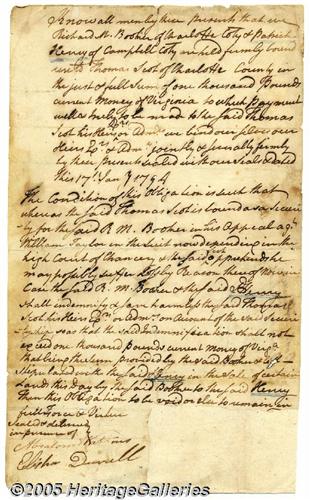 Know all men by these presents that we
Richard M. Booker of Charlotte Coty & Patrick
Henry of Campbell Coty are held & firmly bound
unto Thomas Scot of Charlotte County in
the just & full Sum of one thousand Pounds
current Money of Virginia to which Payment
well & truly to be made to the said Thomas
Scot his Heirs or Admrs we bind ourselves our
Heirs Exrs & Admrs jointly & severally firmly
by these presents sealed with our Seals & dated
this 17th Jany 1794
The Condition of this Obligation is such that
whereas the said Thomas Scot is bound as Security
for the said R. M. Booker in his Appeal agt
William Taylor in the Suit now depending in the
high Court of Chancery & the said Scot apprehends he
may possibly suffer Loss by Reason thereof Now in
Case the said R. M. Booker & the said Henry
shall indemnify & save harmless the said Thomas
Scot his Heirs Exrs or Admrs on Account of the said Security
ship so as that the said Indemnification shall not
exceed one thousand pounds current Money of Virga
that being the Sum provided by the said Booker &
with the said Henry in the Sale of certain
Lands this day by the said Booker to the said Henry
Then this Obligation to be void or else to remain in
full Force & Virtue
Sealed & delivered
in presence of
Elisha
©2005 HeritageGalleries